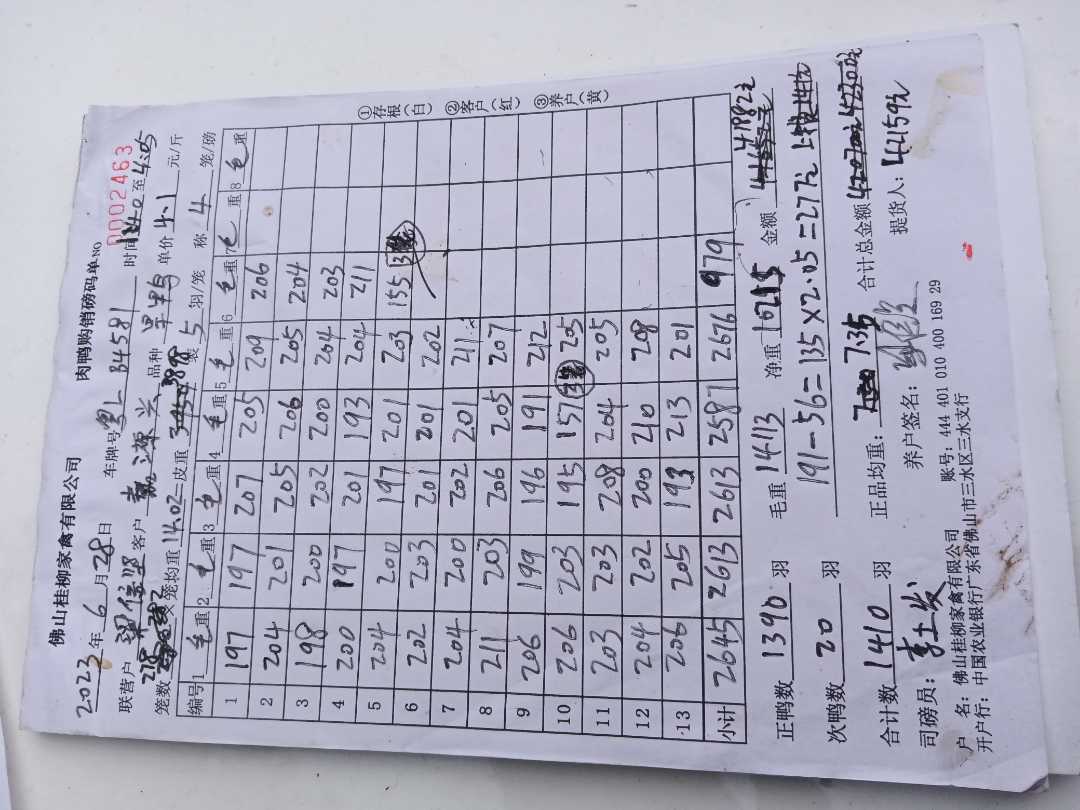 佛山桂柳家禽有限公司 肉鸭购销磅码单 NO 0002463
2023年6月28日 车牌号 B4581 时间 至4:05
联营户 客户 品种 单价4.1元/斤
笼数 278 笼均重14.02 皮重 装5羽/笼 称4笼/磅
编号 1毛重 2毛重 3毛重 4毛重 5毛重 6毛重 7毛重 8毛重
1 197 197 207 205 209 206
2 204 201 205 206 205 204
3 198 200 202 200 204 203
4 200 197 201 193 204 211
5 204 200 197 201 203 155
6 202 203 201 201 202
7 204 200 202 201 211
8 211 203 206 205 207
9 206 199 196 191 212
10 206 203 195 157 205
11 203 203 208 204 205
12 204 202 200 210 208
13 206 205 193 213 201
小计 2645 2613 2613 2587 2676 979
①存根(白) ②客户(红) ③养户(黄)
正鸭数 1390 羽 毛重 14113 净重 10215 金额 41882元
次鸭数 20 羽 191-56=135×2.05=277元
合计数 1410 羽 正品均重: 7.35 合计总金额
司磅员: 养户签名: 提货人: 42159元
户 名: 佛山桂柳家禽有限公司 账号: 444 401 010 400 169 29
开户行: 中国农业银行广东省佛山市三水区三水支行